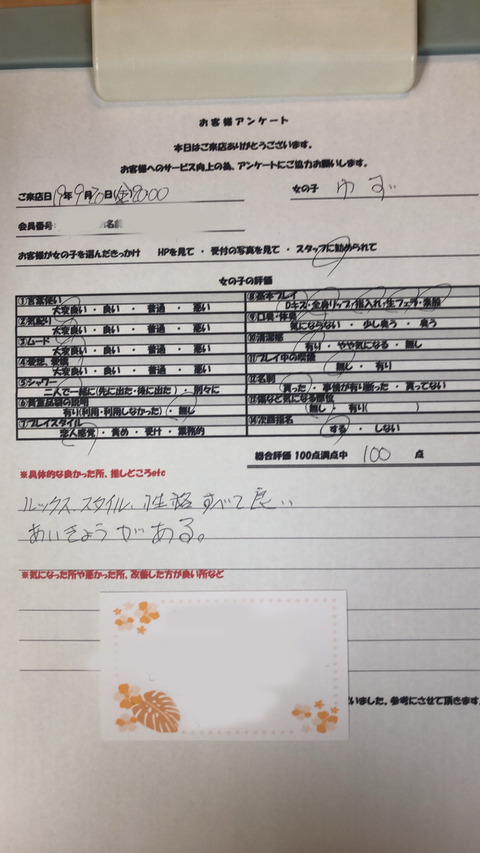 お客様アンケート
本日はご来店ありがとうございます。
お客様へのサービス向上の為、アンケートにご協力お願いします。
ご来店日 19年 9月20日(金)20:00 女の子 ゆず
会員番号: 名前
お客様が女の子を選んだきっかけ HPを見て ・ 受付の写真を見て ・ スタッフに勧められて
女の子の評価
①言葉使い
大変良い ・ 良い ・ 普通 ・ 悪い
②気配り
大変良い ・ 良い ・ 普通 ・ 悪い
③ムード
大変良い ・ 良い ・ 普通 ・ 悪い
④
大変良い ・ 良い ・ 普通 ・ 悪い
⑤シャワー
二人で一緒に(先に出た・後に出た) ・ 別々に
⑥貴重品袋の説明
有り(利用・利用しなかった) ・ 無し
⑦プレイスタイル
恋人感覚 ・ 責め ・ 受け ・ 業務的
⑧基本プレイ
Dキス・全身リップ・指入れ・生フェラ・素股
⑨口臭・体臭
気にならない ・ 少し臭う ・ 臭う
⑩清潔感
有り ・ やや気になる ・ 無し
⑪プレイ中の喫煙
無し ・ 有り
⑫名刺
貰った ・ 事情が有り断った ・ 貰ってない
⑬傷など気になる部位
無し ・ 有り( )
⑭次回指名
する ・ しない
総合評価 100点満点中 100 点
※具体的な良かった所、推しどころetc
ルックス、スタイル、性格すべて良い
あいきょうがある。
※気になった所や悪かった所、改善した方が良い所など
いました。参考にさせて頂きます